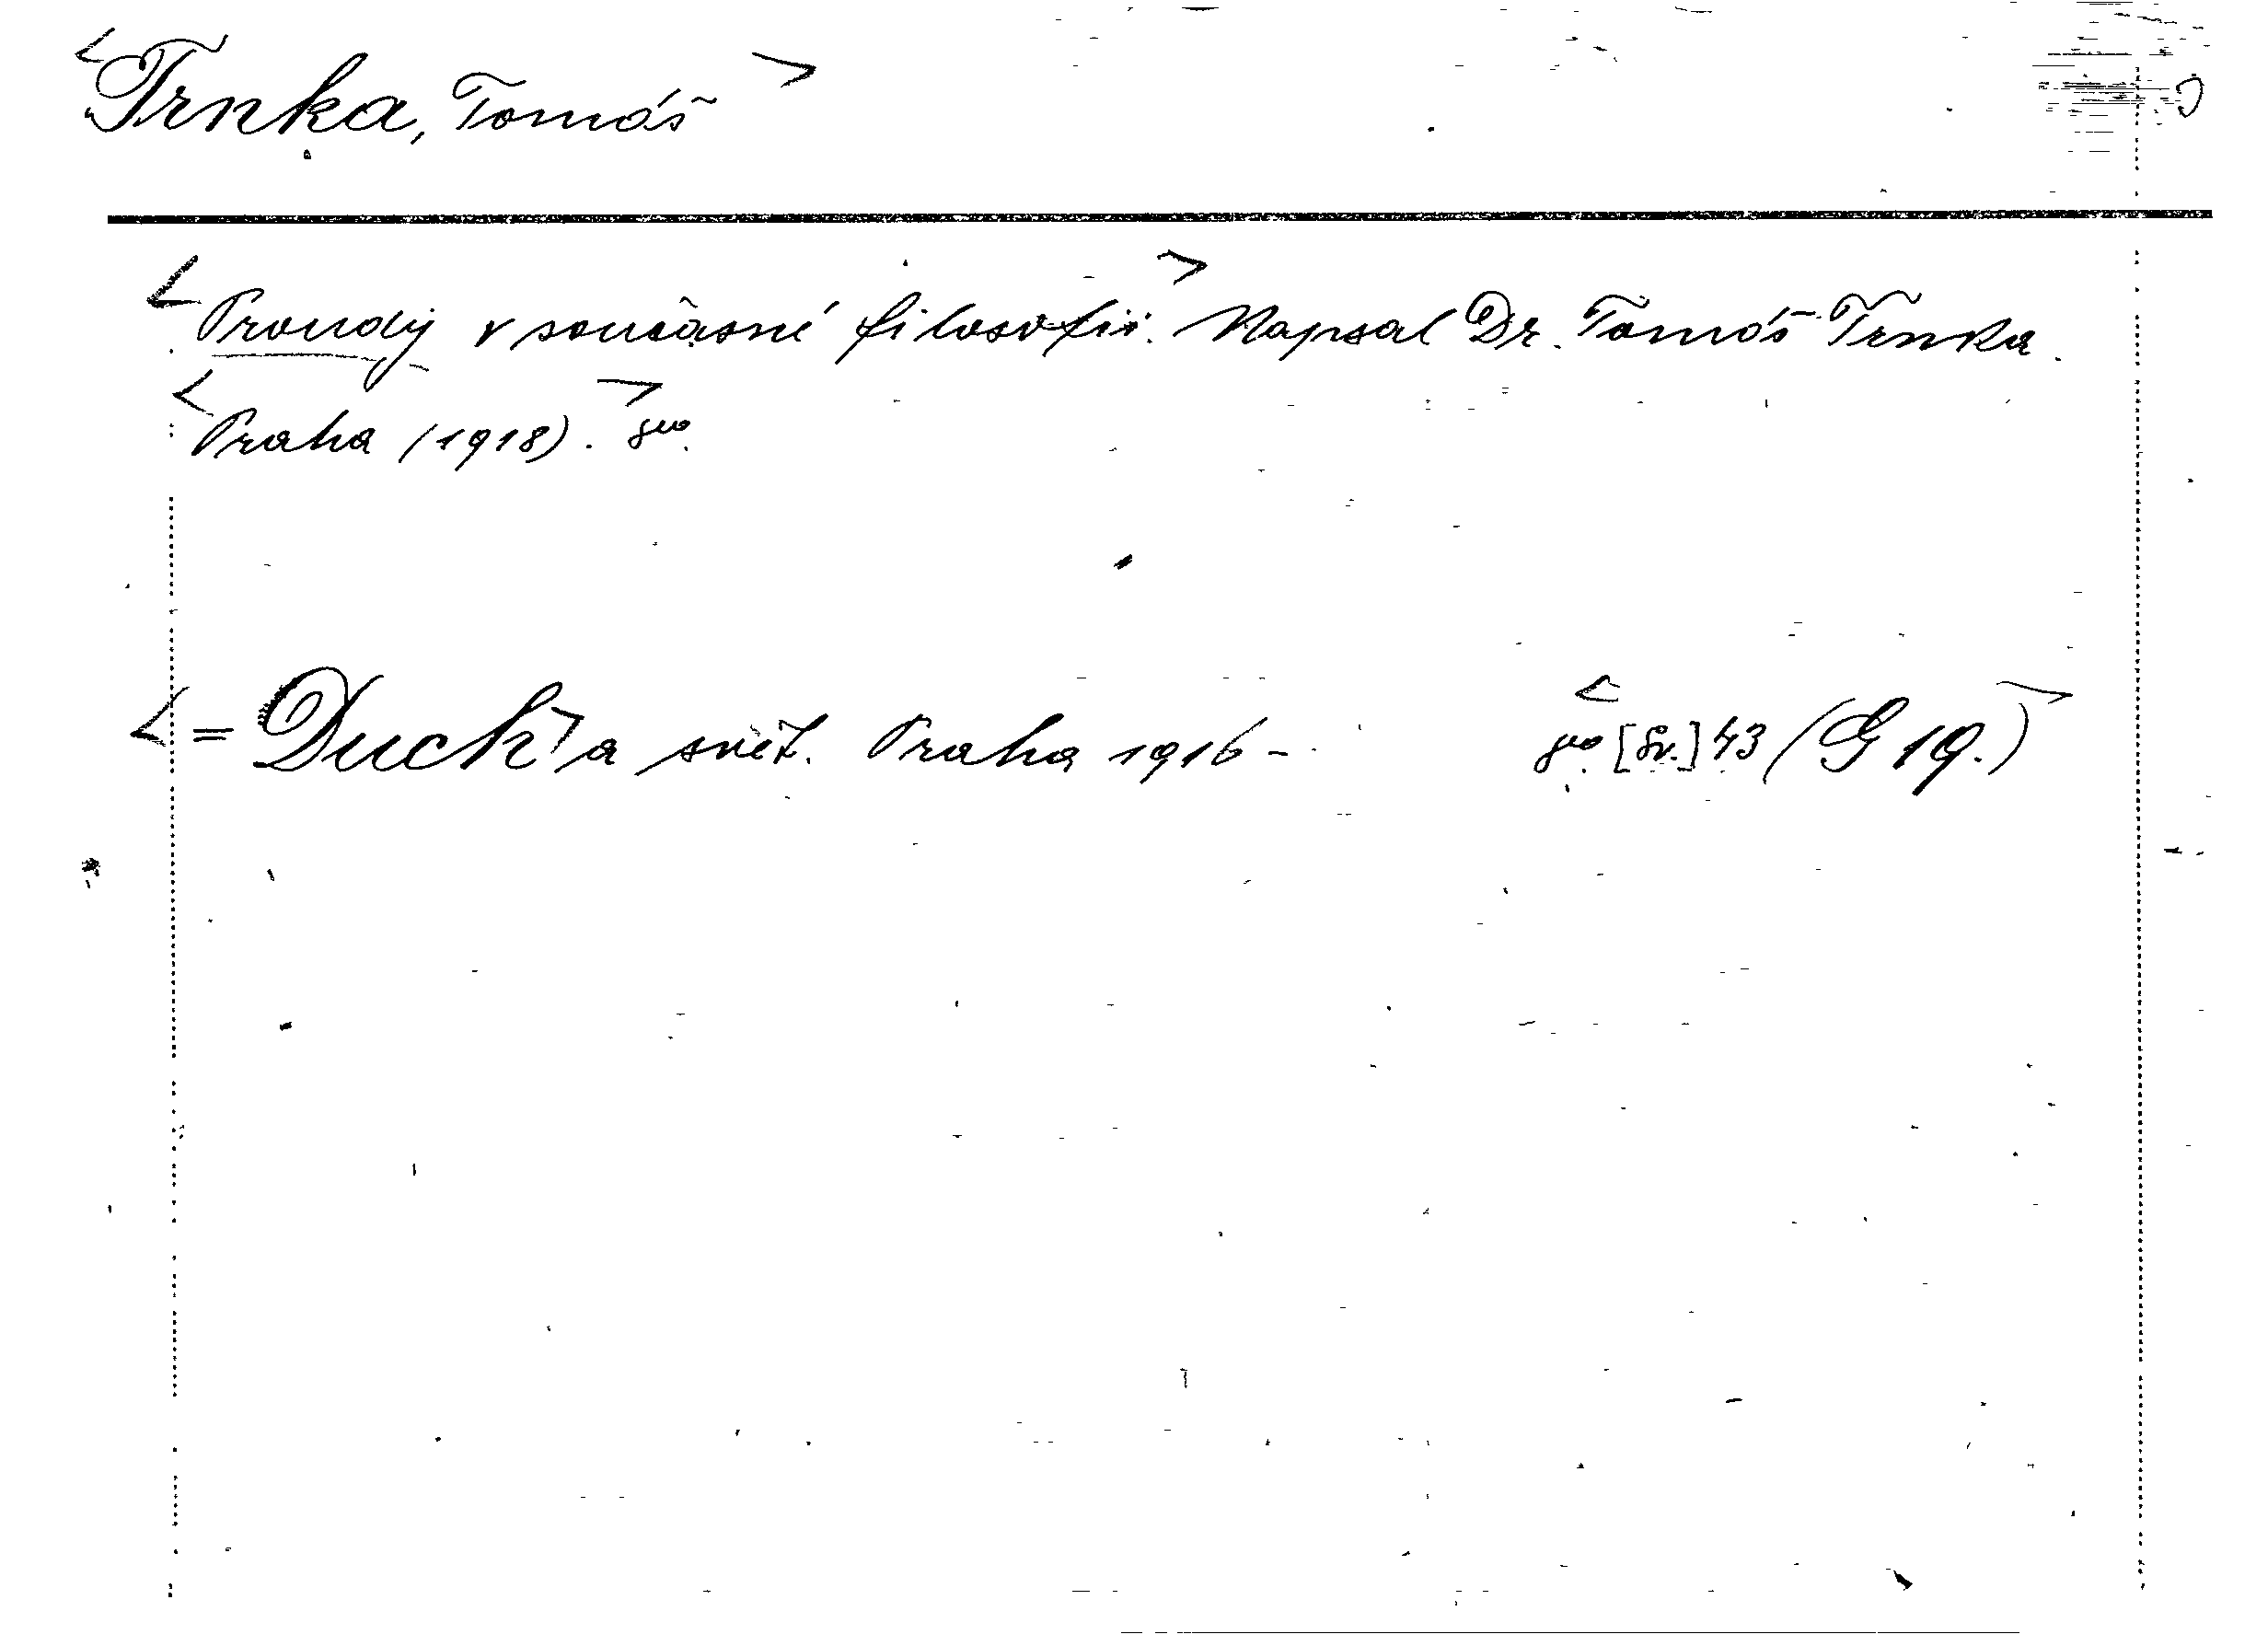 <Trnka, Tomáš>
<Proudy v současné filosofii.> Napsal Dr. Tomáš Trnka.
<Praha (1918).> 8vo.
<= Duch> a svět. Praha 1916- 8vo. <[Sv.] 43 (G 19.)>